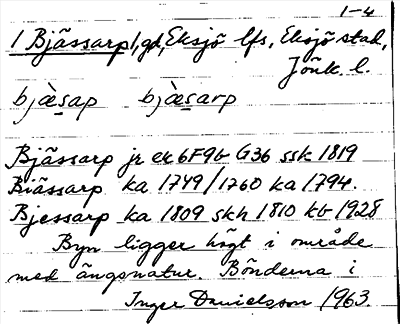 1-4
1 Bjässarp, gd, Eksjö lfs, Eksjö stad,
Jönk. l.
bjæ̀sap bjæ̀sarp
Bjässarp jr ek 6F9b G36 ssk 1819
Biässarp ka 1749/1760 ka 1794.
Bjessarp ka 1809 skh 1810 kb 1928
Byn ligger högt i område
med ängsnatur. Bönderna i
Inger Danielsson 1963.